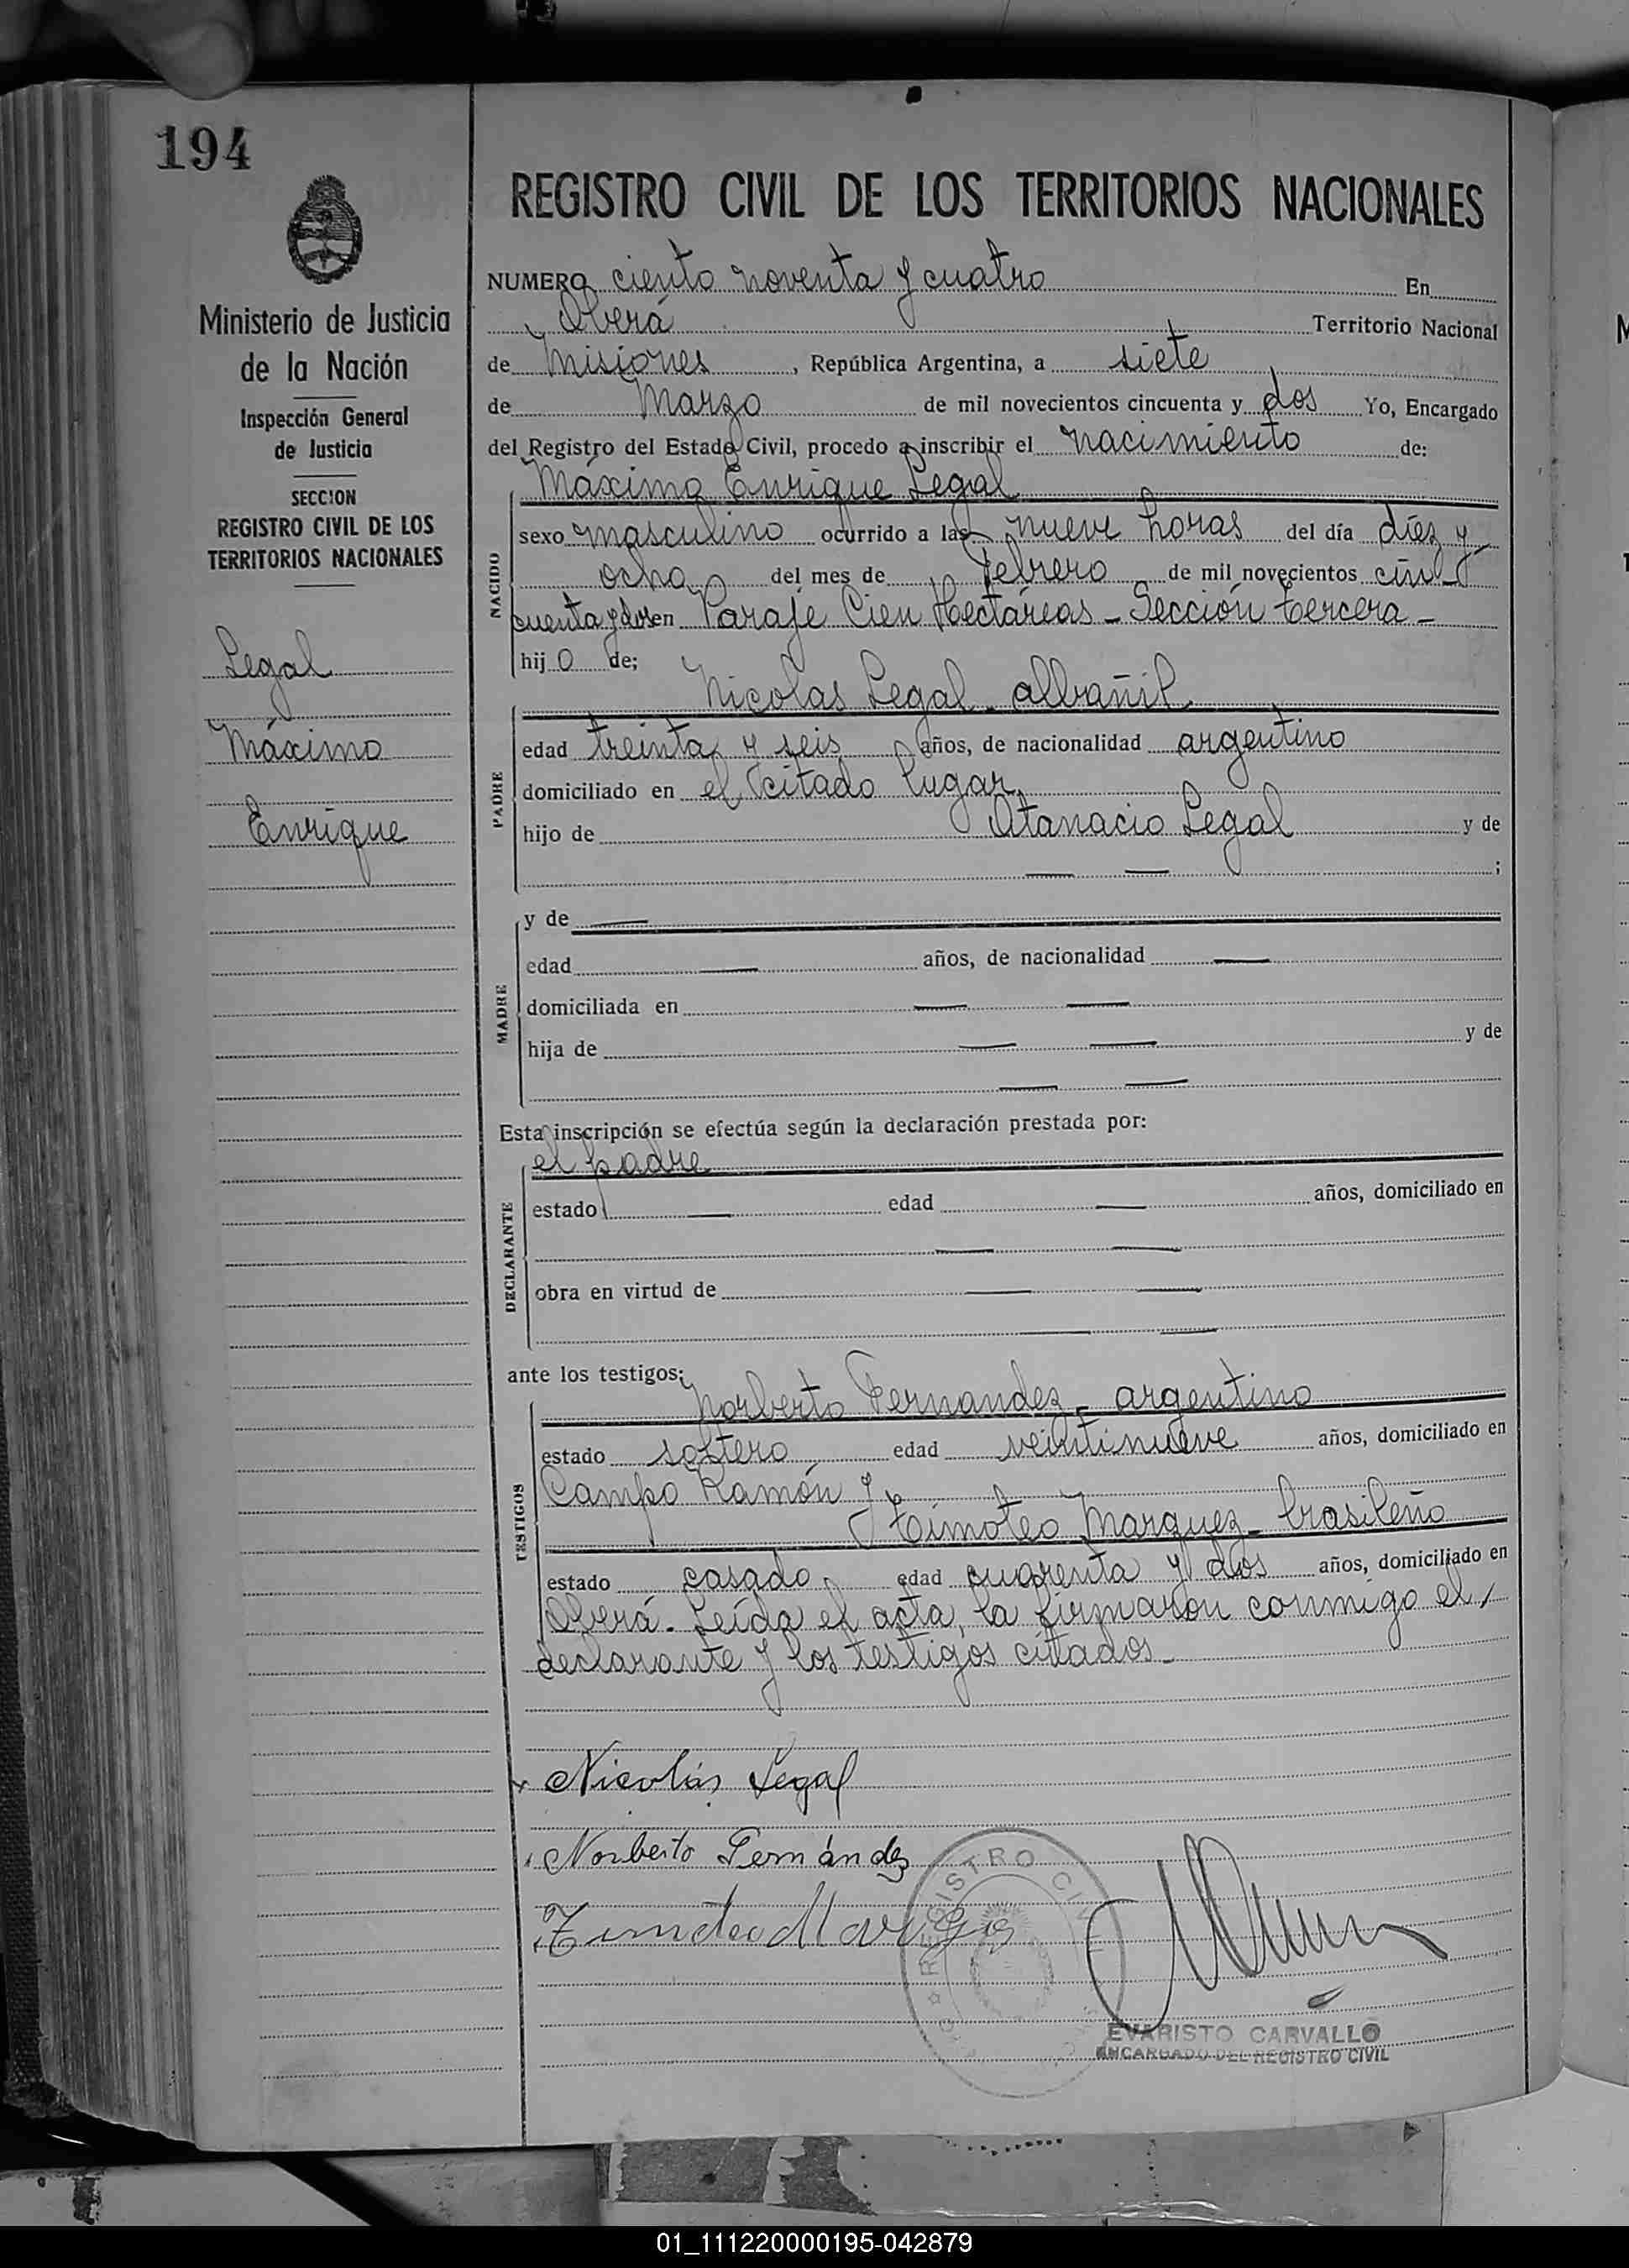 194
Ministerio de Justicia
de la Nación
Inspección General
de Justicia
SECCION
REGISTRO CIVIL DE LOS
TERRITORIOS NACIONALES
Legal
Máximo
Enrique
REGISTRO CIVIL DE LOS TERRITORIOS NACIONALES
NUMERO ciento noventa y cuatro En
Oberá Territorio Nacional
de Misiones, República Argentina, a siete
de Marzo de mil novecientos cincuenta y dos Yo, Encargado
del Registro del Estado Civil, procedo a inscribir el nacimiento de:
Máximo Enrique Legal
NACIDO
sexo masculino ocurrido a las nueve horas del día diez y
ocho del mes de Febrero de mil novecientos cin-
cuenta y dos en Paraje Cien Hectáreas - Sección tercera -
hijo de;
Nicolas Legal - albañil
PADRE
edad treinta y seis años, de nacionalidad argentino
domiciliado en el citado lugar,
hijo de Atanacio Legal y de
— — ;
MADRE
y de —
edad — años, de nacionalidad —
domiciliada en — —
hija de — — y de
— —
Esta inscripción se efectúa según la declaración prestada por:
el padre
DECLARANTE
estado — edad — años, domiciliado en
— —
obra en virtud de — —
— —
ante los testigos:
Norberto Fernandez - argentino
TESTIGOS
estado soltero edad veintinueve años, domiciliado en
Campo Ramón y
Timoteo Marquez - brasileño
estado casado edad cuarenta y dos años, domiciliado en
Oberá. Leída el acta, la firmaron conmigo el/
declarante y los testigos citados -
Nicolás Legal
Norberto Fernández
Timoteo Marquez
REGISTRO CIVIL
EVARISTO CARVALLO
ENCARGADO DEL REGISTRO CIVIL
01_111220000195-042879